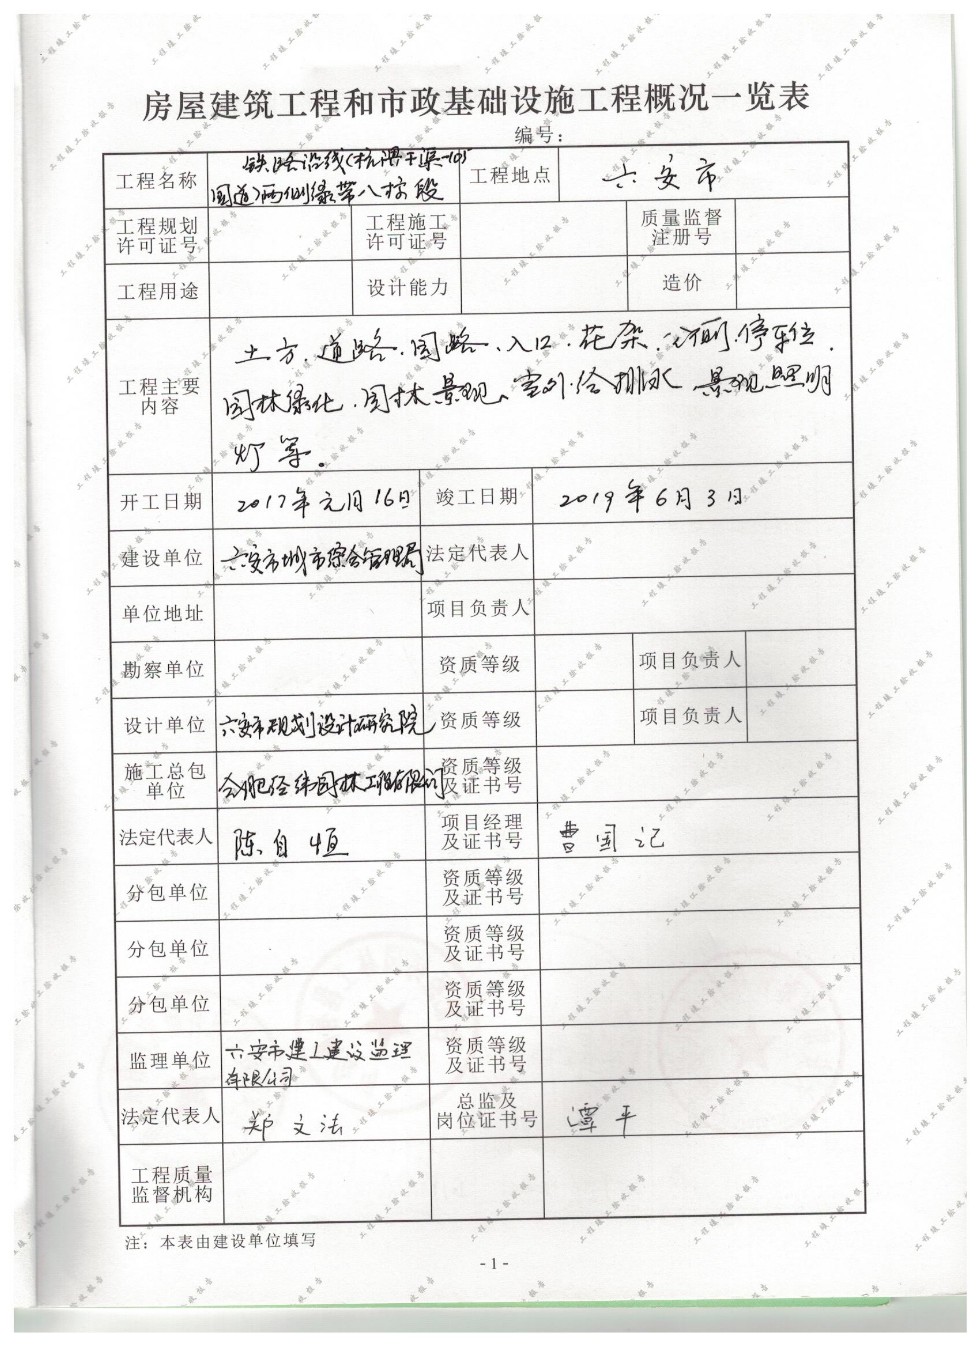 房屋建筑工程和市政基础设施工程概况一览表
编号：
工程名称 铁路沿线(杭淠干渠-105国道)两侧绿带八标段 工程地点 六安市
工程规划许可证号 工程施工许可证号 质量监督注册号
工程用途 设计能力 造价
工程主要内容
土方.道路.园路.入口.花架. 停车位.
园林绿化.园林景观、室外给排水 景观照明
灯等。
开工日期 2017年元月16日 竣工日期 2019年6月3日
建设单位 六安市城市综合管理局 法定代表人
单位地址 项目负责人
勘察单位 资质等级 项目负责人
设计单位 六安市规划设计研究院 资质等级 项目负责人
施工总包单位 合肥经纬园林工程有限公司 资质等级及证书号
法定代表人 陈自恒 项目经理及证书号 曹国记
分包单位 资质等级及证书号
分包单位 资质等级及证书号
分包单位 资质等级及证书号
监理单位 六安市建工建设监理有限公司 资质等级及证书号
法定代表人 郑文法 总监及岗位证书号 谭平
工程质量监督机构
注：本表由建设单位填写
- 1 -
工程竣工验收报告